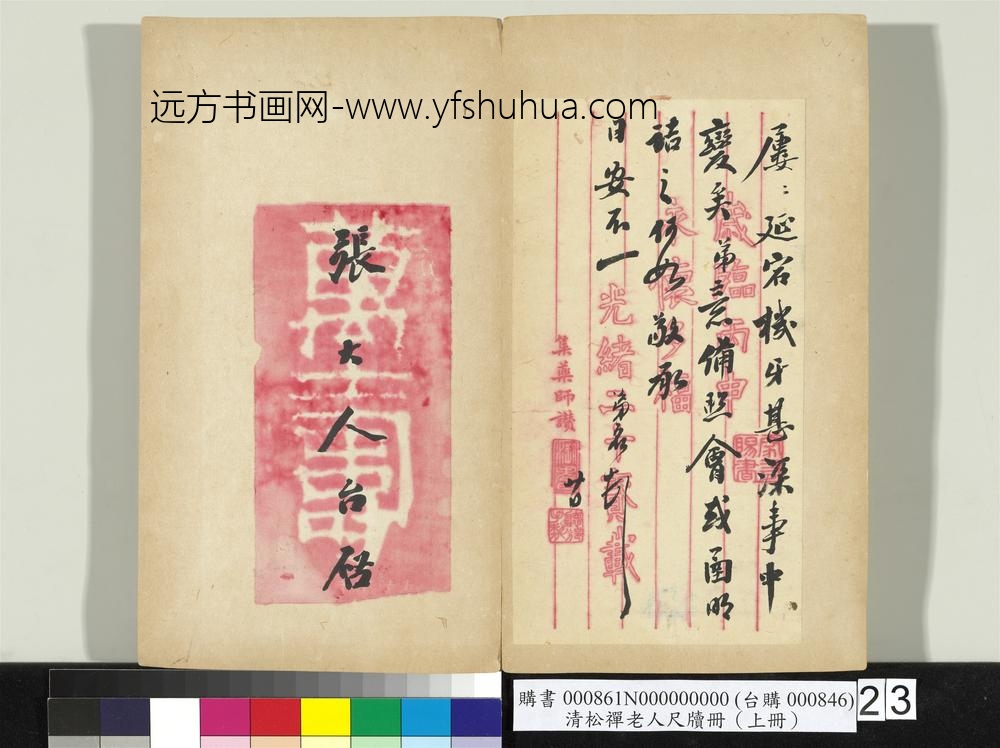 远方书画网-www.yfshuhua.com
屢〻延宕機牙甚深事中
變矣弟意備照會或函明
詰之何如敬承
日安不一
弟名頓
廿日
歲臨丙申
永懷多福
光緒
載
集藥師讚
張大人台啓
購書 000861N000000000 (台購 000846)
清松禪老人尺牘冊（上冊）
23